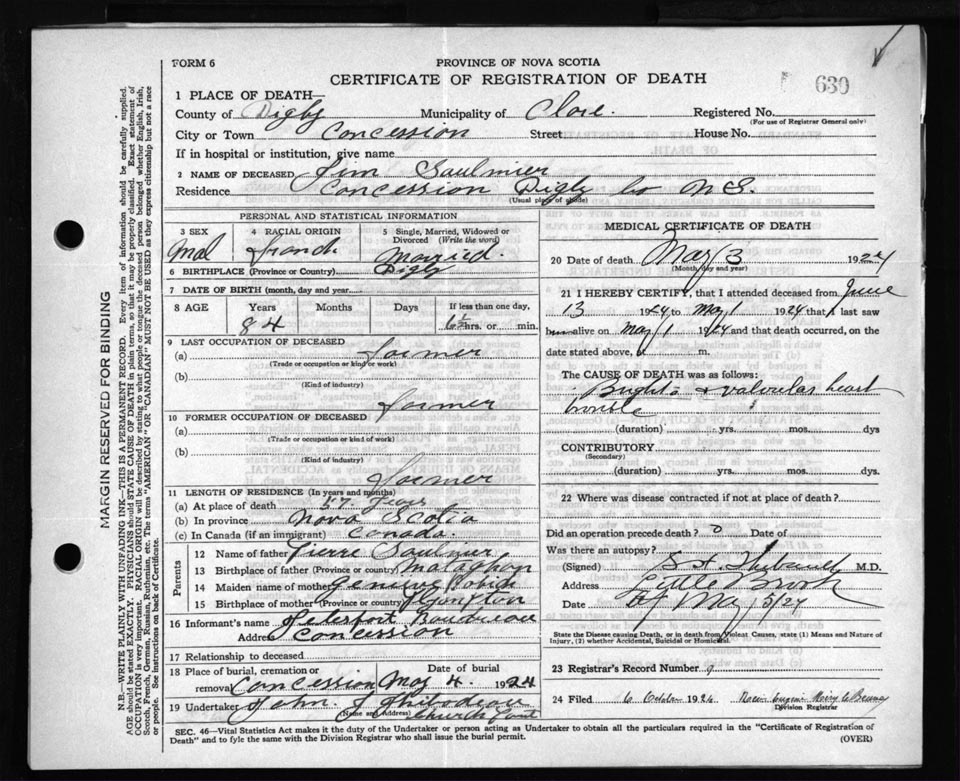 FORM 6
PROVINCE OF NOVA SCOTIA
CERTIFICATE OF REGISTRATION OF DEATH
639
1 PLACE OF DEATH—
County of Digby Municipality of Clare. Registered No.
(For use of Registrar General only)
City or Town Concession Street House No.
If in hospital or institution, give name
2 NAME OF DECEASED Jim Saulnier
Residence Concession Digby Co N.S.
(Usual place of abode)
PERSONAL AND STATISTICAL INFORMATION
3 SEX 4 RACIAL ORIGIN 5 Single, Married, Widowed or Divorced (Write the word)
Mal french Married.
6 BIRTHPLACE (Province or Country) Digby
7 DATE OF BIRTH (month, day and year)
8 AGE Years Months Days If less than one day,
84 hrs. or min.
9 LAST OCCUPATION OF DECEASED
(a) farmer
(Trade or occupation or kind of work)
(b)
(Kind of industry)
farmer
10 FORMER OCCUPATION OF DECEASED
(a)
(Trade or occupation or kind of work)
(b)
(Kind of industry)
farmer
11 LENGTH OF RESIDENCE (In years and months)
(a) At place of death 57 years
(b) In province Nova Scotia
(c) In Canada (if an immigrant) Canada.
Parents
12 Name of father Pierre Saulnier
13 Birthplace of father (Province or country)
14 Maiden name of mother
15 Birthplace of mother (Province or country)
16 Informant's name
Address Concession
17 Relationship to deceased
18 Place of burial, cremation or removal Date of burial
Concession May 4. 1924
19 Undertaker John
(Name and Address) Church Point
MEDICAL CERTIFICATE OF DEATH
20 Date of death May 3 1924
(Month, day and year)
21 I HEREBY CERTIFY, that I attended deceased from June
13 1924 to May 1 1924 that I last saw
him alive on May 1 1924 and that death occurred, on the
date stated above, at m.
The CAUSE OF DEATH was as follows:
Bright's + valvular heart
trouble
(duration) yrs. mos. dys
CONTRIBUTORY
(Secondary)
(duration) yrs. mos. dys
22 Where was disease contracted if not at place of death?
Did an operation precede death? Date of
Was there an autopsy?
(Signed) Thibault M.D.
Address Little Brook
Date May 5/24
State the Disease causing Death, or in death from Violent Causes, state (1) Means and Nature of Injury, (2) whether Accidental, Suicidal or Homicidal.
23 Registrar's Record Number 9
24 Filed 6 October 1924
Division Registrar
SEC. 46—Vital Statistics Act makes it the duty of the Undertaker or person acting as Undertaker to obtain all the particulars required in the "Certificate of Registration of
Death" and to fyle the same with the Division Registrar who shall issue the burial permit.
(OVER)
MARGIN RESERVED FOR BINDING
N.B.—WRITE PLAINLY WITH UNFADING INK—THIS IS A PERMANENT RECORD. Every item of information should be carefully supplied.
AGE should be stated EXACTLY. PHYSICIANS should STATE CAUSE OF DEATH in plain terms, so that it may be properly classified. Exact statement of
OCCUPATION is very important. RACIAL ORIGIN will be described by stating to what people or tongue the deceased person belonged whether English, Irish,
Scotch, French, German, Russian, Ruthenian, etc. The terms "AMERICAN" OR "CANADIAN" MUST NOT BE USED as they express citizenship but not a race
or people. See instructions on back of Certificate.